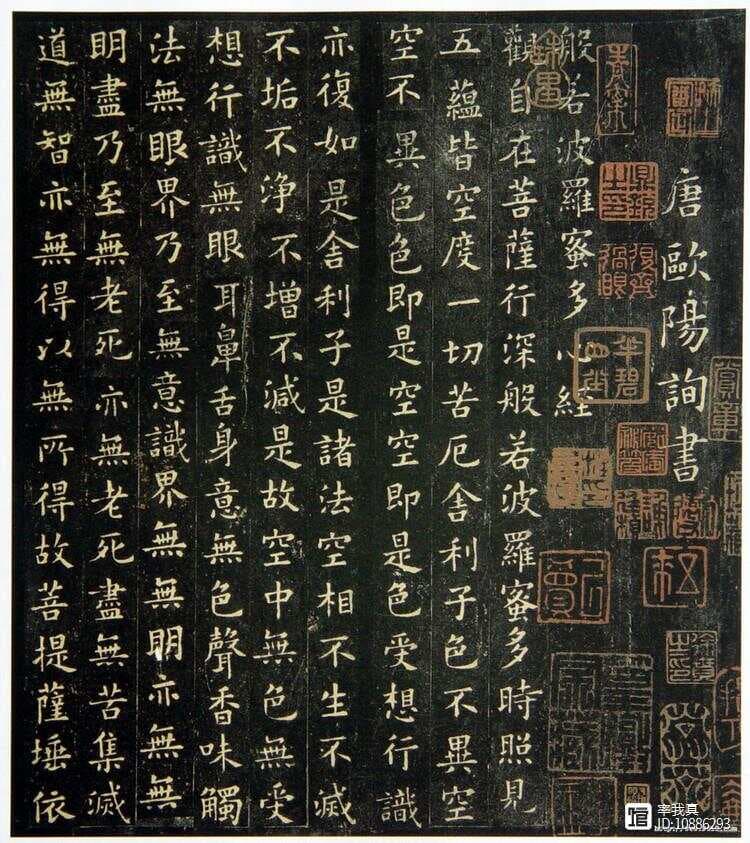 唐歐陽詢書
般若波羅蜜多心経
觀自在菩薩行深般若波羅蜜多時照見
五蘊皆空度一切苦厄舍利子色不異空
空不異色色即是空空即是色受想行識
亦復如是舍利子是諸法空相不生不滅
不垢不淨不增不減是故空中無色無受
想行識無眼耳鼻舌身意無色聲香味觸
法無眼界乃至無意識界無無明亦無無
明盡乃至無老死亦無老死盡無苦集滅
道無智亦無得以無所得故菩提薩埵依
宰我真
ID:10886293